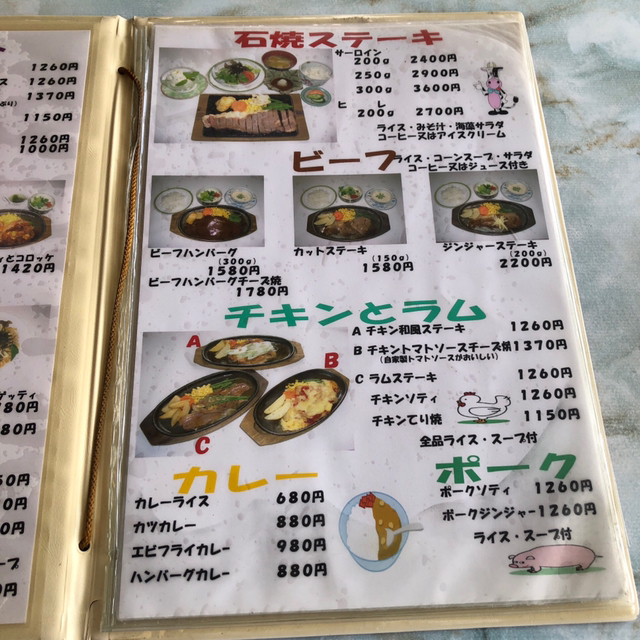 1260円
1260円
1370円
1150円
1260円
1000円
とコロッケ
1420円
石焼ステーキ
サーロイン
200g 2400円
250g 2900円
300g 3600円
ヒレ
200g 2700円
ライス・みそ汁・海藻サラダ
コーヒー又はアイスクリーム
ビーフ
ライス・コーンスープ・サラダ
コーヒー又はジュース付き
ビーフハンバーグ
(300g)
1580円
ビーフハンバーグチーズ焼
1780円
カットステーキ
(150g)
1580円
ジンジャーステーキ
(200g)
2200円
チキンとラム
A
B
C
A チキン和風ステーキ 1260円
B チキントマトソースチーズ焼 1370円
(自家製トマトソースがおいしい)
C ラムステーキ 1260円
チキンソティ 1260円
チキンてり焼 1150円
全品ライス・スープ付
カレー
カレーライス 680円
カツカレー 880円
エビフライカレー 980円
ハンバーグカレー 880円
ポーク
ポークソティ 1260円
ポークジンジャー 1260円
ライス・スープ付